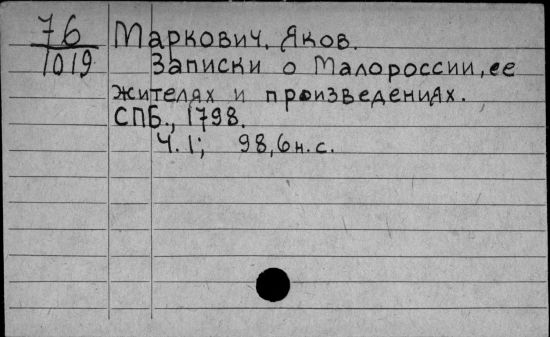 76
1019
Маркович. Яков.
Записки о Малороссии, ее
жителях и произведениях.
СПБ., 1798.
Ч. 1; 98, 6 н. с.